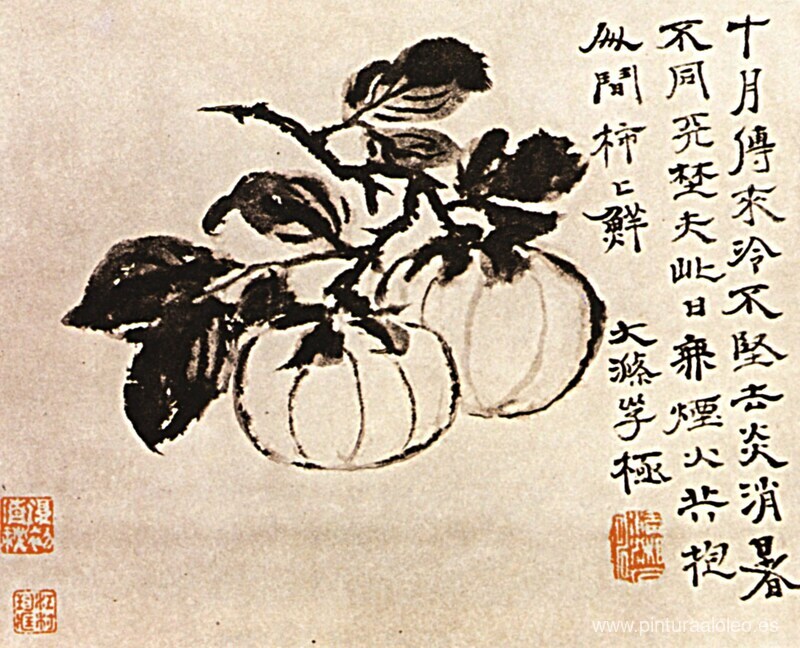 十月傳來冷不堅去炎消暑
不同夫此日無煙火共抱
柿上鮮
大滌子極
www.pinturaaloleo.es